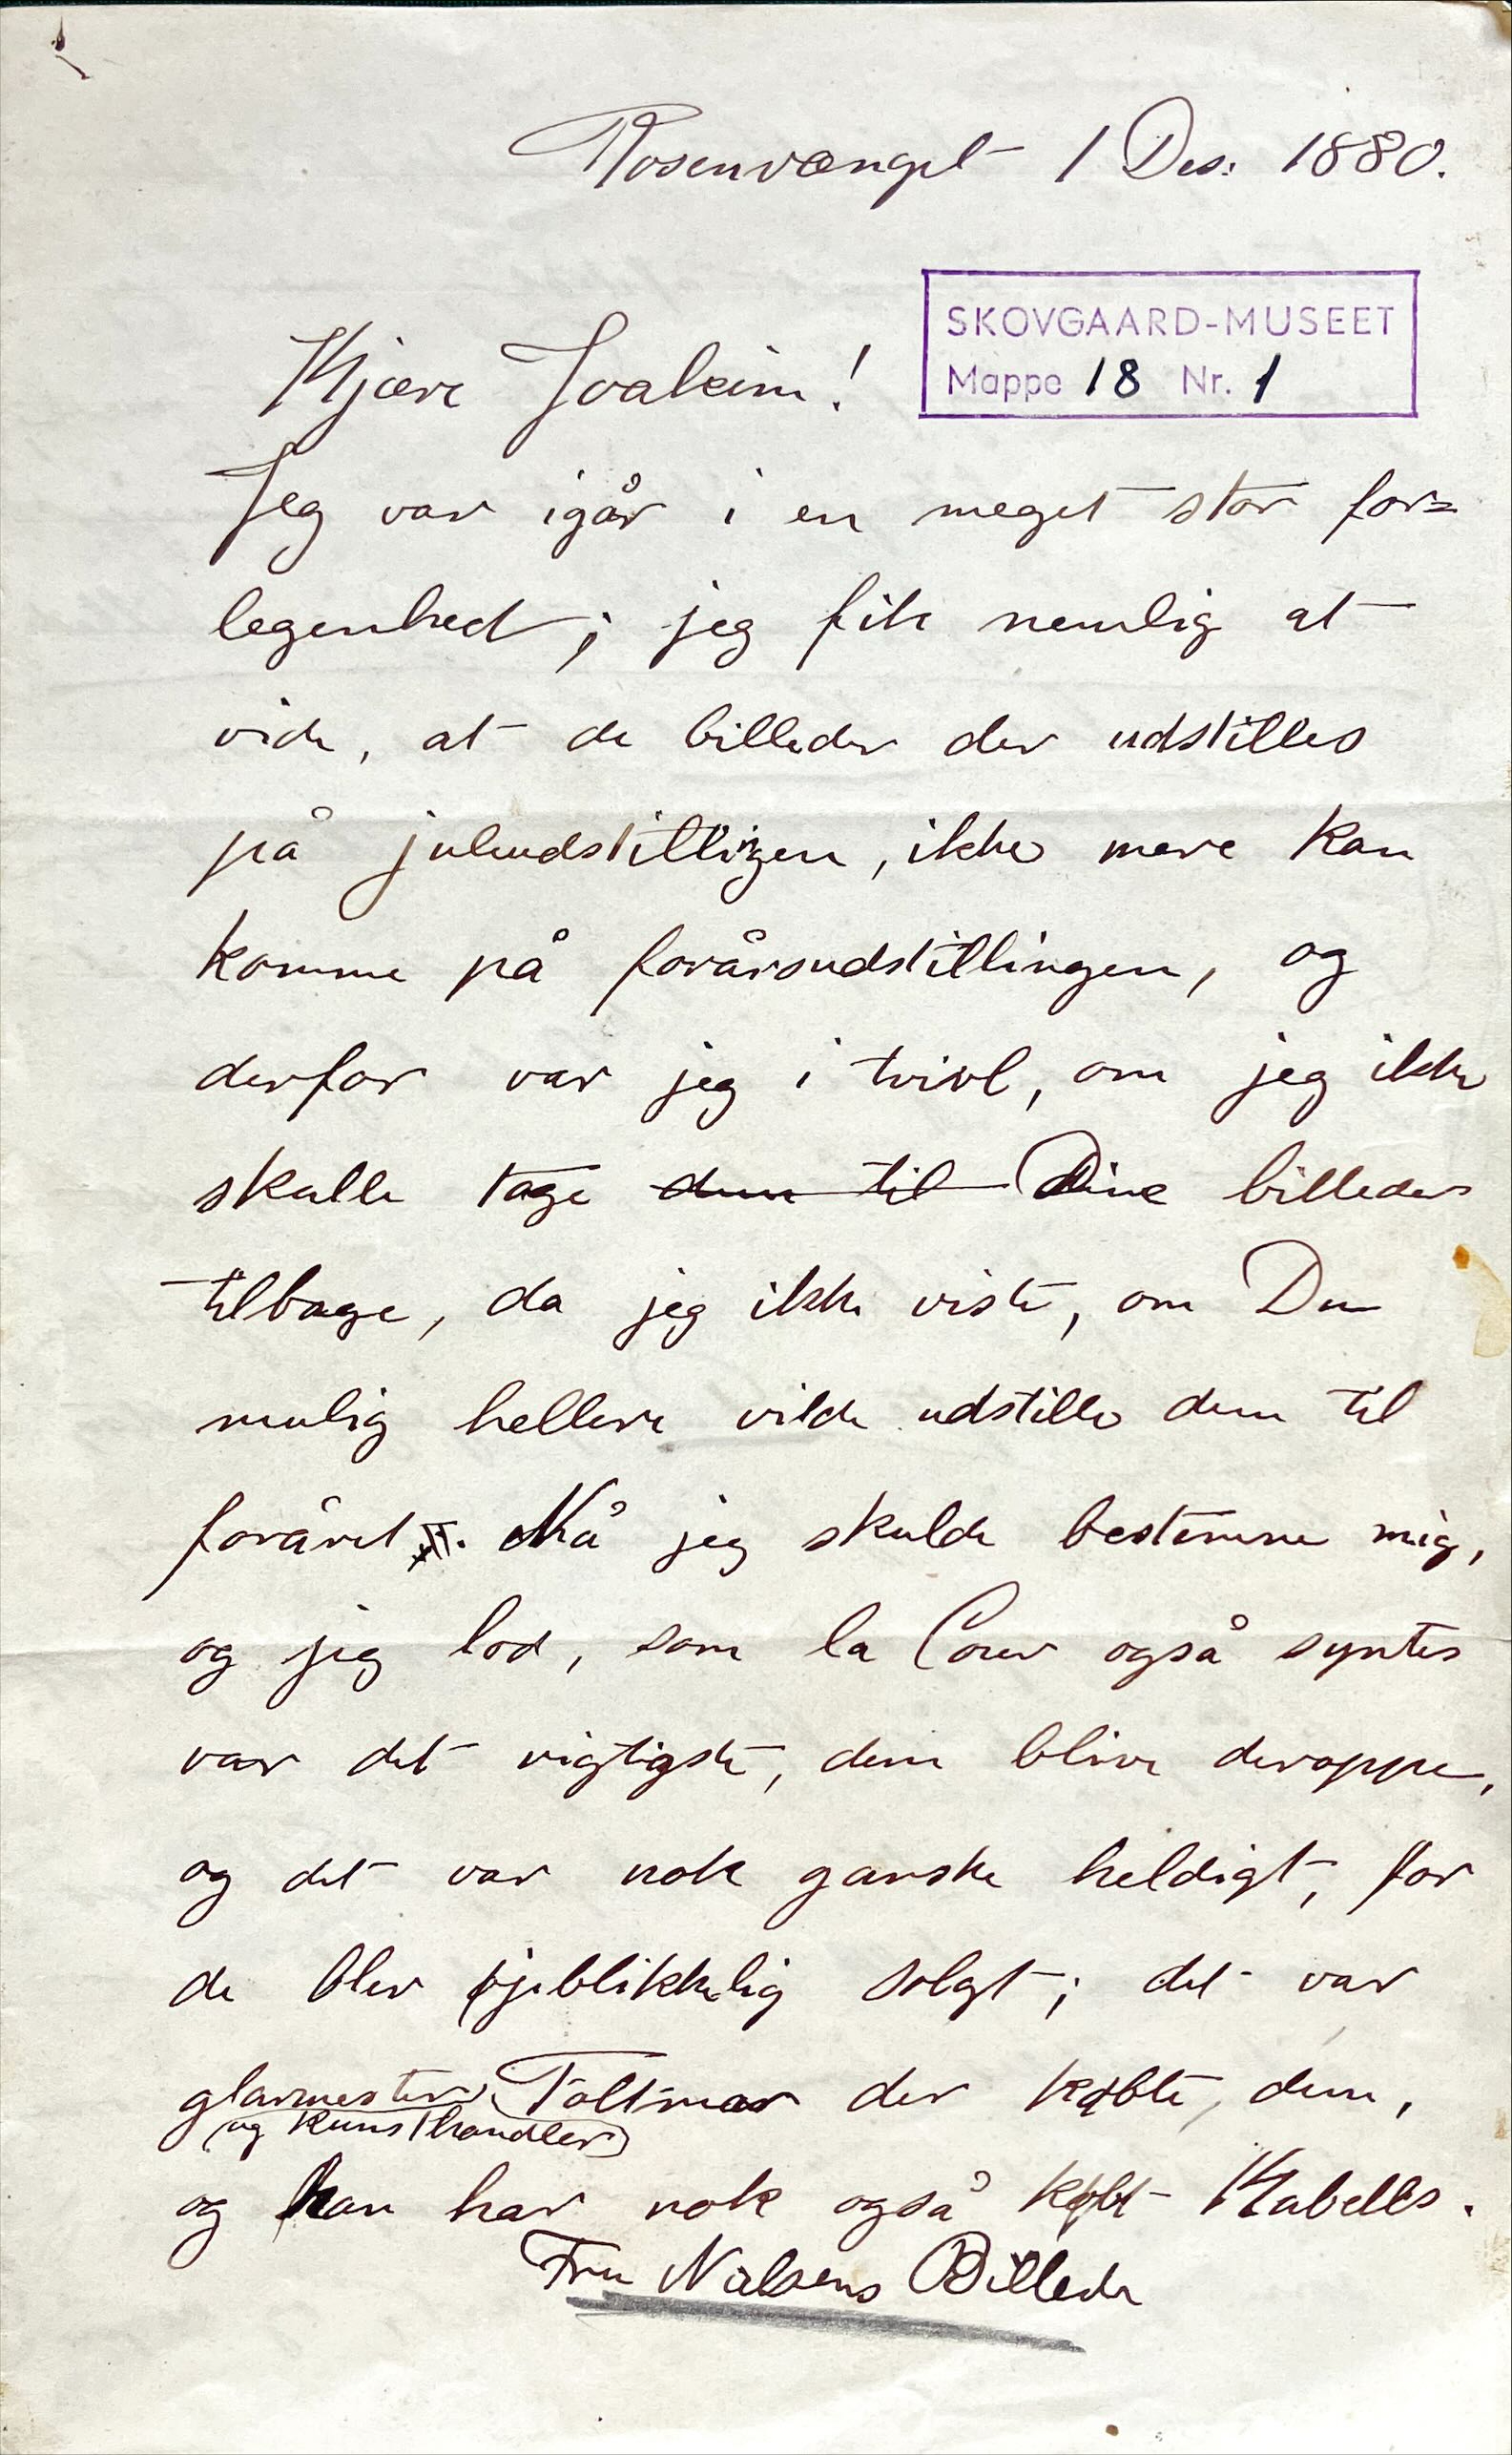 Rosenvænget 1 Des: 1880.
SKOVGAARD-MUSEET
Mappe 18 Nr. 1
Kjære Joakim!
Jeg var igår i en meget stor for=
legenhed; jeg fik nemlig at
vide, at de billeder der udstilles
på juleudstilligen, ikke mere kan
komme på forårsudstillingen, og
derfor var jeg i tvivl, om jeg ikke
skulle tage dem til Dine billeder
tilbage, da jeg ikke viste, om Du
mulig hellere vilde udstille dem til
foråret. Nå jeg skulde bestemme mig,
og jeg lod, som la Cour også syntes
var det rigtigste, dem blive deroppe,
og det var nok ganske heldigt, for
de blev øjeblikkelig solgt; det var
glarmester Toltmar der købte dem,
(og kunsthandler)
og han har nok også købt Kabells.
Fru Nielsens Billede